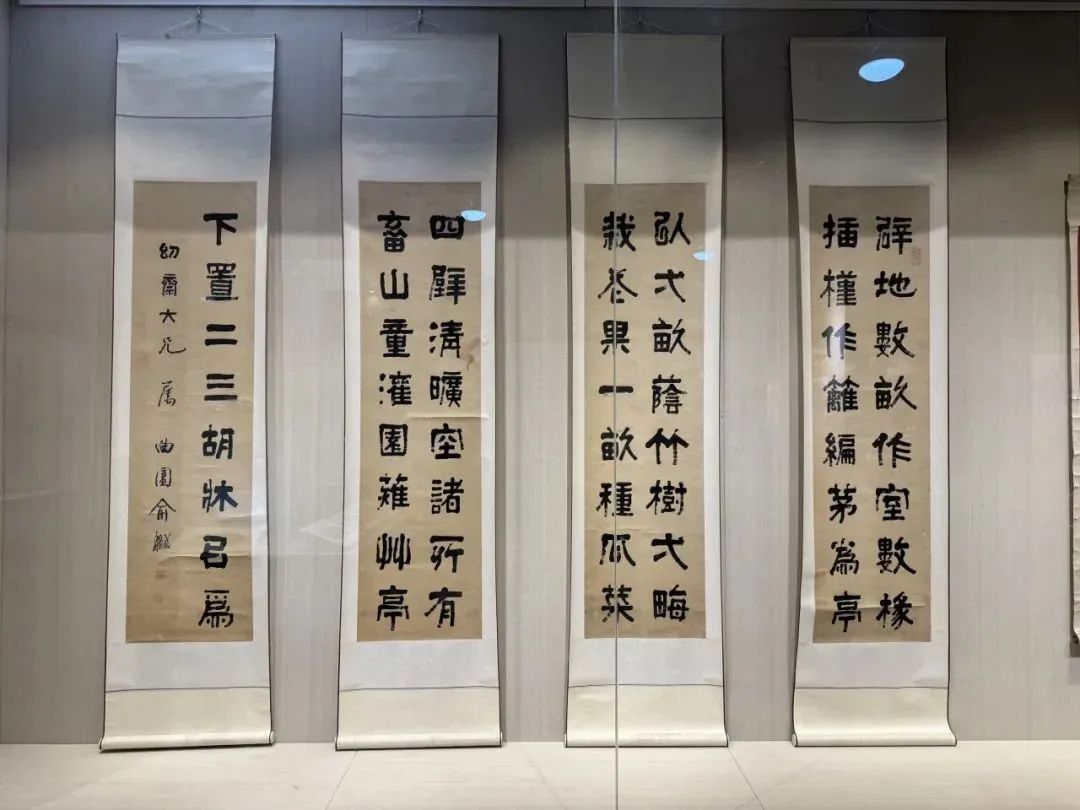 辟地數畝作室數椽
插槿作籬編茅為亭
㕥弌畝蔭竹樹弌畮
栽花果一畝種瓜菜
四壁清曠空諸所有
畜山童灌園薙艸亭
下置二三胡牀㠯爲
幼齋大兄属 曲園俞樾